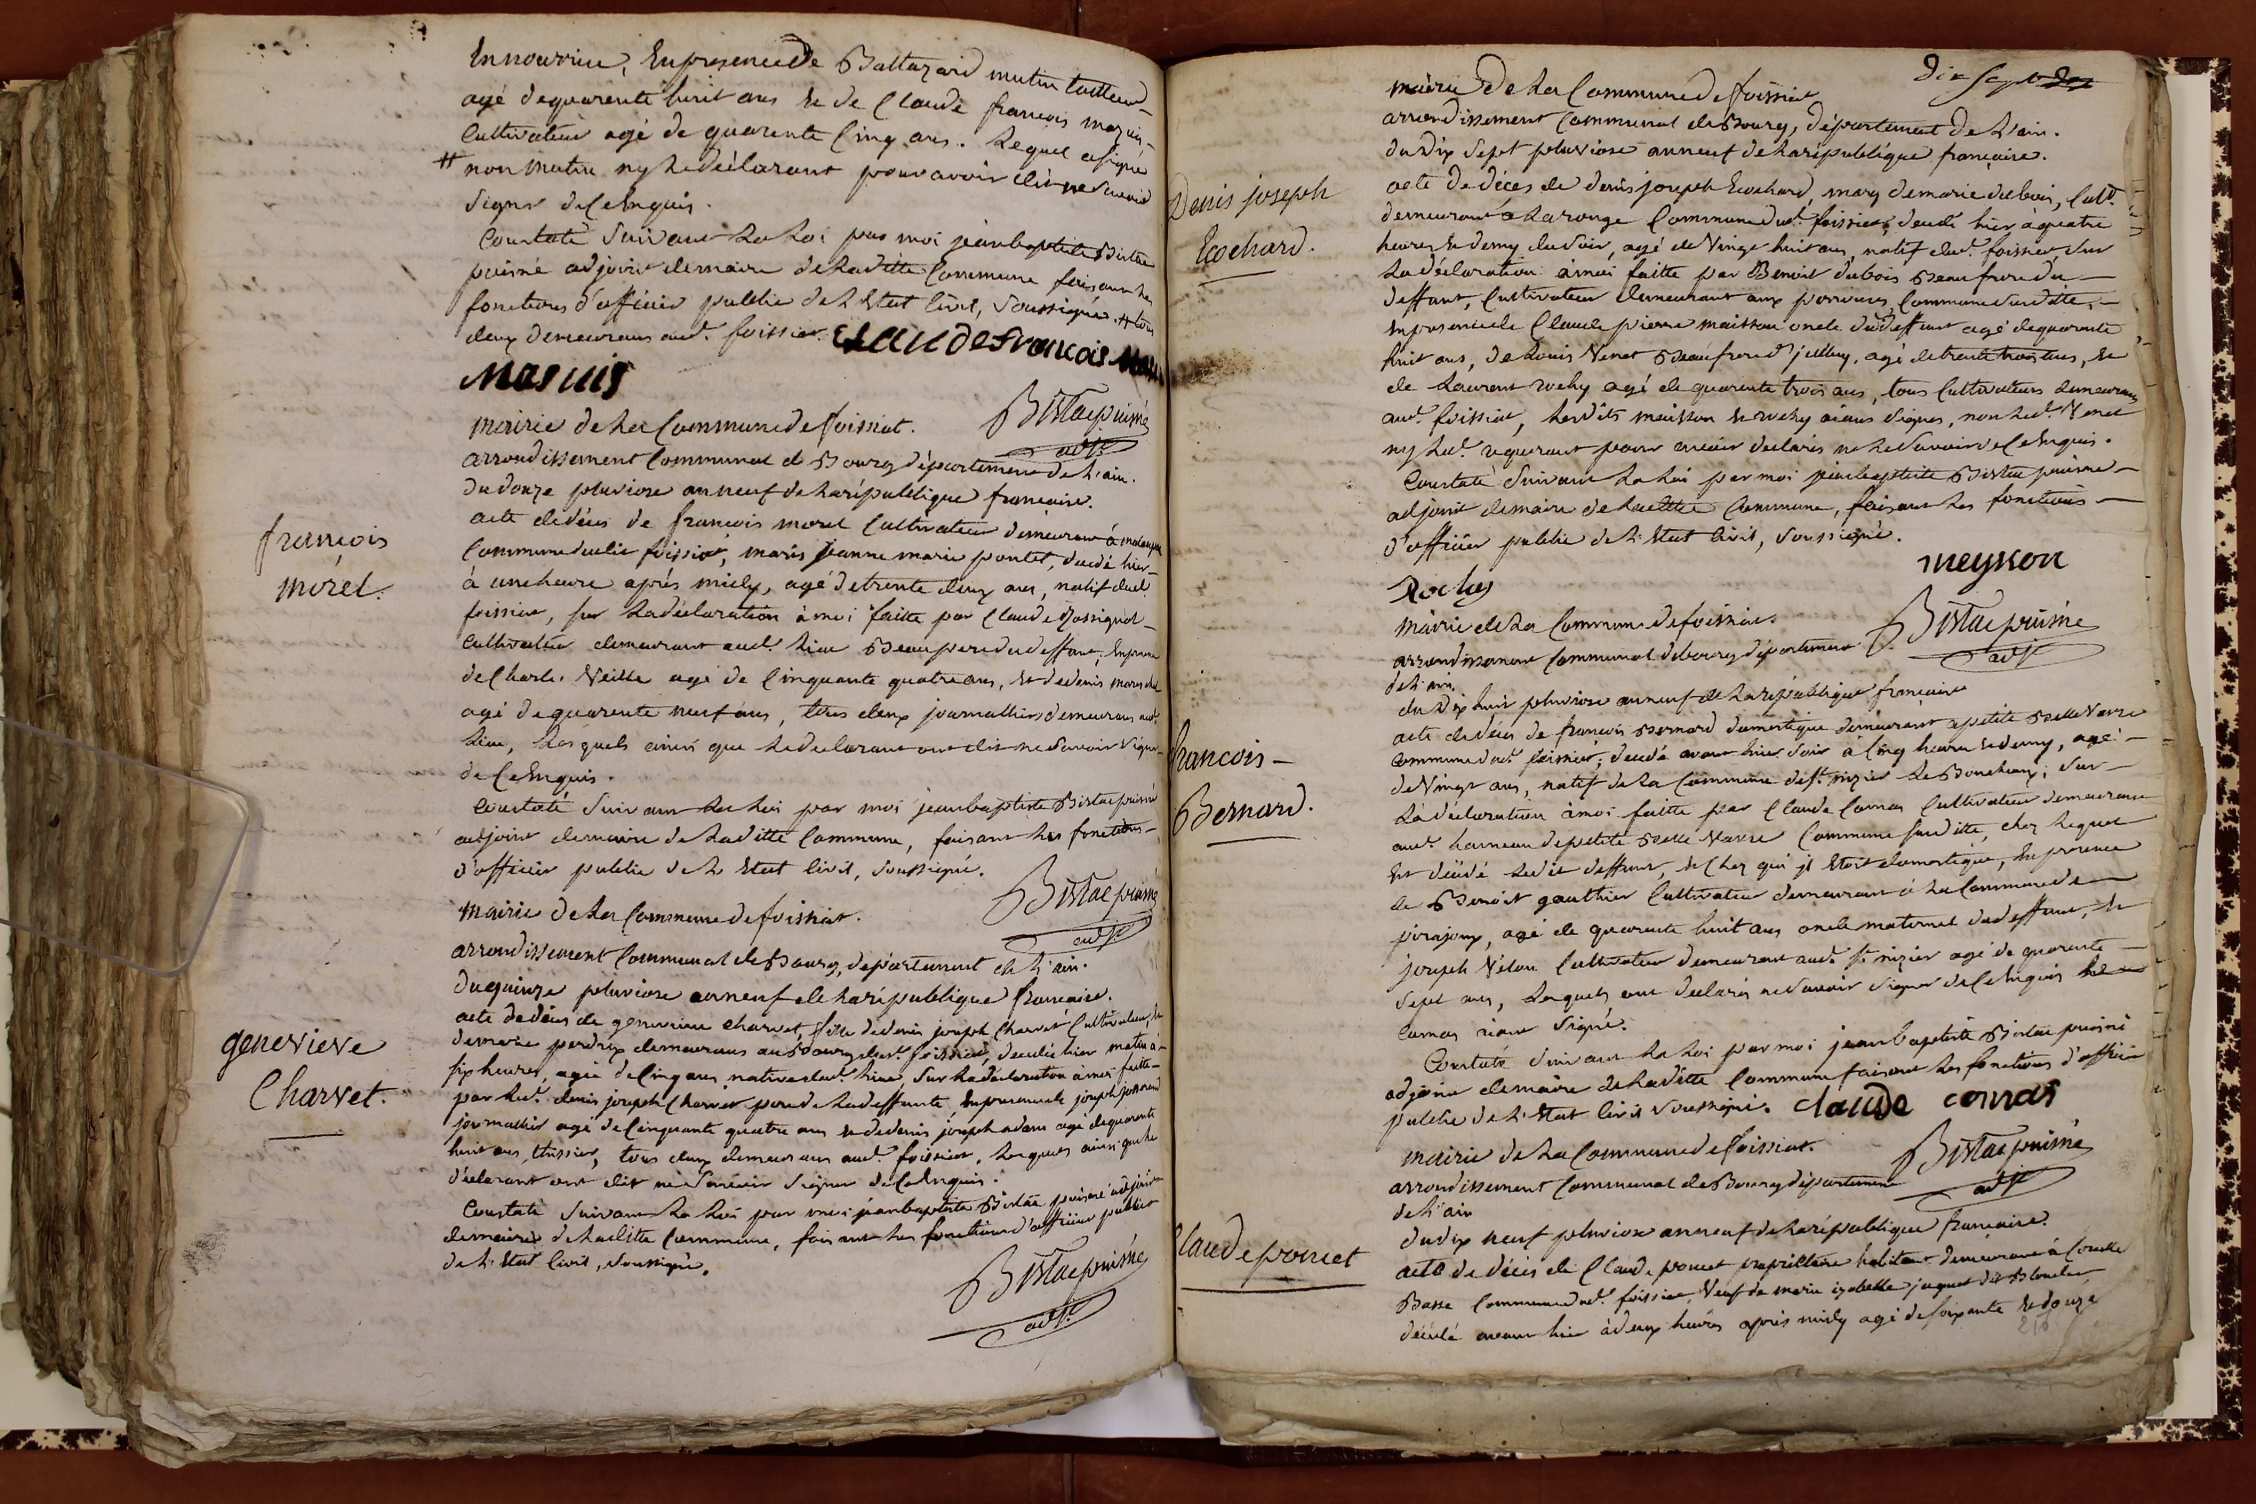 En nourrice, En presence de Baltazard mutin tailleur
agé de quarente huit ans Et de Claude françois
Cultivateur agé de quarente Cinq ans. Lequel a signé
# non Mutin ny Le déclarant pour avoir dit ne Savoir
Signer de Ce Enquis.
Constaté Suivant La Loi par moi jean baptiste Bistac
puisné adjoint de maire de La ditte Commune faisant les
fonctions d'officier public de L'Etat Civil, Soussigné. # tous
deux demeurans aud. foissiat. Claude François
Masuis
Bistac puisné
adjt
francois
morel.
Mairie de La Commune de foissiat.
arrondissement Communal de Bourg département de L'ain.
du douze pluviose an neuf de La république francaise.
acte de décès de francois morel Cultivateur demeurant à
Commune dudit foissiat, maris jeanne marie pontet, décédé hier
à une heure après midy, agé de trente deux ans, natif dud.
foissiat, sur La déclaration à moi faitte par Claude Rossignol
Cultivateur demeurant aud. Lieu Beaupere du deffunt, En presence
de Charle Veille agé de Cinquante quatre ans, Et de denis
agé de quarente neuf ans, tous deux journalliers demeurans aud.
Lieu, Lesquels ainsi que Le declarant ont dit ne Savoir Signer
de Ce Enquis.
Constaté Suivant La Loi par moi jean baptiste Bistac puisné
adjoint de maire de La ditte Commune, faisant Les fonctions
d'officier public de L'Etat Civil, Soussigné.
Bistac puisné
adjt
genevieve
Charvet.
Mairie de La Commune de foissiat.
arrondissement Communal de Bourg, département de L'ain.
du quinze pluviose an neuf de La république francaise.
acte de décès de genevieve Charvet, fille de denis joseph Charvet Cultivateur, Et
de marie perdrix demeurans au Bourg dud. foissiat, décédée hier matin à
six heures, agée de Cinq ans, native dud. Lieu, Sur La déclaration à moi faitte
par Led. denis joseph Charvet pere de La deffunte, En presence de joseph josserand
journallier agé de Cinquante quatre ans Et de denis joseph adam agé de quarente
huit ans, tissier, tous deux demeurans aud. foissiat, Lesquels ainsi que Le
déclarant ont dit ne Savoir Signer de Ce Enquis.
Constaté Suivant La Loi par moi jean baptiste Bistac puisné adjoint
de maire de La ditte Commune, faisant Les fonctions d'officier public
de L'Etat Civil, Soussigné.
Bistac puisné
adjt
Dix Sept
Denis joseph
Ecochard.
Mairie de La Commune de foissiat
arrondissement Communal de Bourg, département de L'ain.
du Dix Sept pluviose an neuf de La république française.
acte de décès de denis joseph Ecochard, mary de marie dubois, Cultr.
demeurant à La rouge Commune dud. foissiat, décédé hier à quatre
heures Et demy du Soir, agé de Vingt huit ans, natif dud. foissiat, Sur
La déclaration à moi faitte par Benoit dubois Beaufrere du
deffunt, Cultivateur demeurant aux Commune Sus ditte,
En presence de Claude pierre maisson oncle du deffunt agé de quarente
huit ans, de Louis Venet Beaufrere d'jcelluy, agé de trente trois ans, Et
de Laurent rochy agé de quarente trois ans, tous Cultivateurs demeurans
aud. foissiat, Lesdits maisson Et rochy aians Signés, non Led. Venet
ny Led. requerant pour avoir declarés ne Le Savoir de Ce Enquis.
Constaté Suivant La Loi par moi jean baptiste Bistac puisné
adjoint de maire de La ditte Commune, faisant Les fonctions
d'officier public de L'Etat Civil, Soussigné.
meysson
Rochy
Bistac puisné
adjt
francois
Bernard.
Mairie de La Commune de foissiat
arrondissement Communal de bourg département
de L'ain.
du Dix huit pluviose an neuf de La république francaise
acte de décès de francois Bernard domestique demeurant a petite Belle Vavre
Commune dud. foissiat, décédé avant hier Soir à Cinq heures Et demy, agé
de Vingt ans, natif de La Commune de St. nizier Le Bouchoux; Sur
La déclaration à moi faitte par Claude Cornas Cultivateur demeurant
aud. hameau de petite Belle Vavre Commune Susditte, chez Lequel
Est décédé Ledit deffunt, Et Chez qui jl Etoit domestique, En presence
de Benoit gauthier Cultivateur demeurant à La Commune de
pirajoux, agé de quarente huit ans oncle maternel du deffunt, Et
joseph Velon Cultivateur demeurant aud. St. nizier agé de quarente
Sept ans, Lesquels ont declarés ne Savoir Signer de Ce Enquis
Cornas aiant Signé.
Constaté Suivant La Loi par moi jean baptiste Bistac puisné
adjoint de maire de La ditte Commune faisant Les fonctions d'officier
public de L'Etat Civil Soussigné. Claude Cornas
Bistac puisné
adjt
Claude poncet
Mairie de La Commune de foissiat.
arrondissement Communal de Bourg département
de L'ain
du dix neuf pluviose an neuf de La république francaise.
acte de décès de Claude poncet propriétaire habitant demeurant à
Basse Commune dud. foissiat, Veuf de marie izabelle juquet dit
décédé avant hier à deux heures après midy agé de soixante Et douze